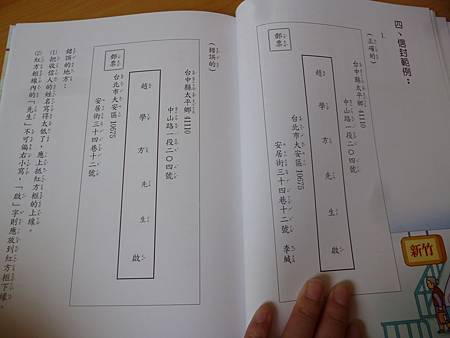 四、信封範例：
1.
(正確的)
台中縣太平鄉 41110
中山路一段二○四號
郵票
趙學方先生 啟
台北市大安區 10675
安居街三十四巷十二號 李緘
新竹
(錯誤的)
台中縣太平鄉 41110
中山路一段二○四號
郵票
趙學方先生 啟
台北市大安區 10675
安居街三十四巷十二號
錯誤的地方：
(1)把收信人的姓名寫得太低了，應上抵紅方框的上緣。
(2)紅方框內的「先生」不可偏右小寫，「啟」字則應放到紅方框下緣。